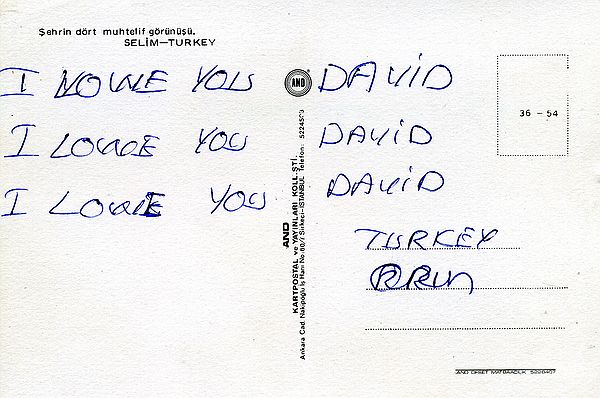 Şehrin dört muhtelif görünüşü.
SELİM—TURKEY
I LOWE YOU DAVID
I LOWE YOU DAVID
I LOWE YOU DAVID
TURKEY
AND
36 – 54
AND
KARTPOSTAL ve YAYINLARI KOLL. ŞTİ.
Ankara Cad. Nakipoğlu İş Hanı No. 60/7 Sirkeci—İSTANBUL Telefon:
AND OFSET MATBAACILIK 5228407